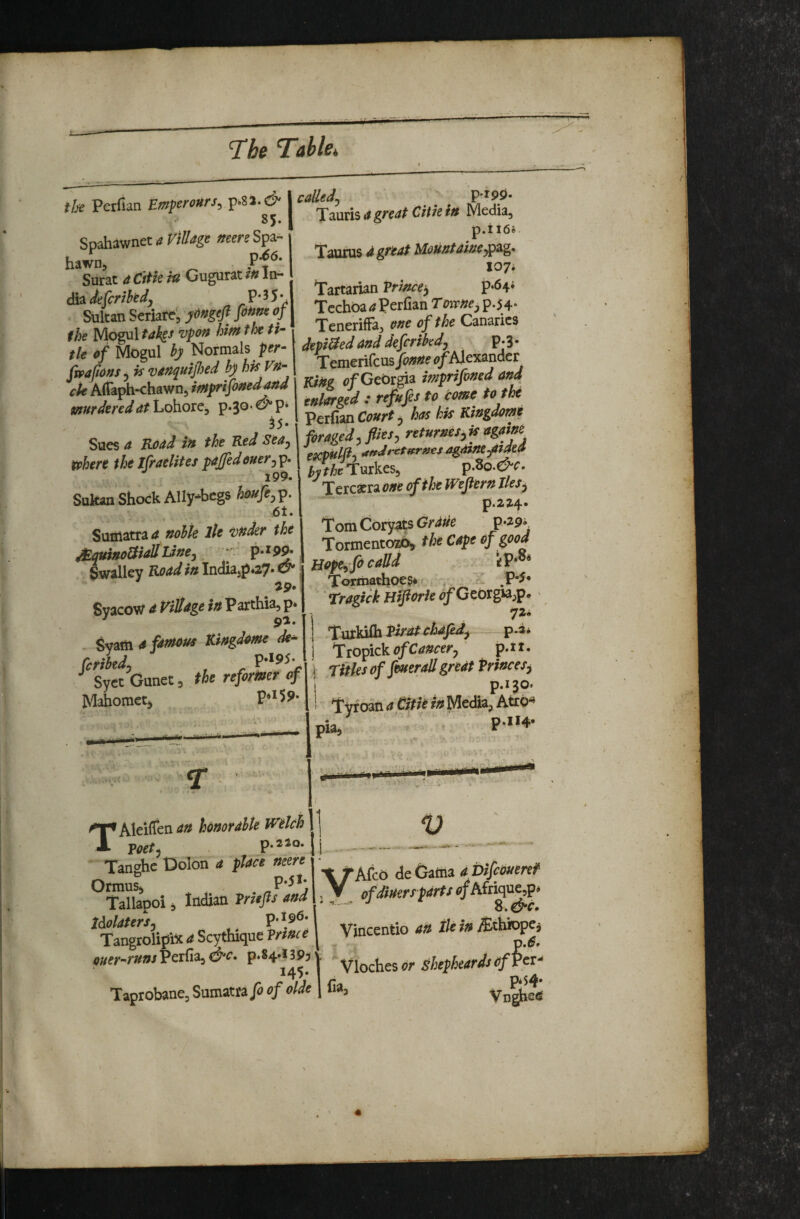 The Table.
the Perſian Emperours, p.82. &
85.
Spahawnet a Village neere Spa-
hawn, p.66.
Surat a Citie in Gugurat in In-
dia deſcribed, p.35.
Sultan Seriare, yongeſt ſonne of
the Mogul takes vpon him the ti-
tle of Mogul by Normals per-
ſwaſions, is vanquiſhed by his Vn-
cle Aſſaph-chawn, impriſoned and
murdered at Lohore, p.30. & p.
35.
Sues a Road in the Red Sea,
where the Iſraelites paſſed ouer, p.
199.
Sultan Shock Ally-begs houſe, p.
61.
Sumatra a noble Ile vnder the
ÆquinoctiallLine, p.199.
Swalley Road in India, p.27. &
29.
Syacow a Village in Parthia, p.
92.
Syam a famous Kingdome de-
ſcribed, p.195.
Syet Gunet, the reformer of
Mahomet, p.159.
T
TAleiſſen an honorable Welch
Poet, p.220.
Tanghe Dolon a place neere
Ormus, p.51.
Tallapoi, Indian Prieſts and
Idolaters, p.196.
Tangrolipix a Scythique Prince
ouer-runs Perſia, &c. p.84.139,
145.
Taprobane, Sumatra ſo of olde
called, p.199.
Tauris a great Citie in Media,
p.116.
Taurus a great Mountaine, pag.
107.
Tartarian Prince, p.64.
Techoa a Perſian Towne, p.54.
Teneriffa, one of the Canaries
depicted and deſcribed, p.3.
Temeriſcus ſonne of Alexander
King of Georgia impriſoned and
enlarged : refuſes to come to the
Perſian Court, has his Kingdome
foraged, flies, returnes, is againe
expulſt, and returnes againe, aided
by the Turkes, p.80. &c.
Tercæra one of the Weſtern Iles,
p.224.
Tom Coryats Graue p.29.
Tormentozo, the Cape of good
Hope, ſo calld p.8.
Tormathoes. p.5.
Tragick Hiſtorie of Georgia, p.
72.
Turkiſh Pirat chaſed, p.2.
Tropick of Cancer, p.11.
Titles of ſeuerall great Princes,
p.130.
Tyroan a Citie in Media, Atro-
pia, p.114.
V
VAſco de Gama a Diſcouerer
of diuers parts of Afrique, p.
8. &c.
Vincentio an Ile in Æthiope,
p.6.
Vloches or Shepheards of Per-
ſia, p.54.
Vnghee